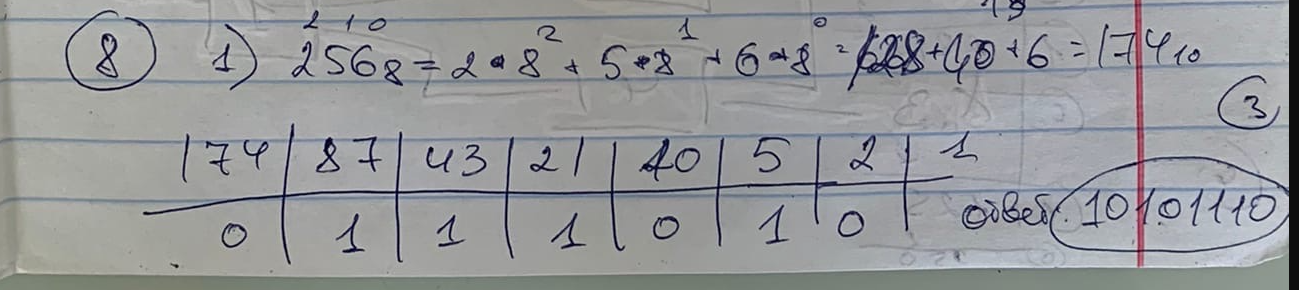 8 1) 256₈ = 2*8² + 5*8¹ + 6*8⁰ = 128+40+6 = 174₁₀
2 1 0
3
174 | 87 | 43 | 21 | 10 | 5 | 2 | 1
0 | 1 | 1 | 1 | 0 | 1 | 0 |
ответ. 10101110